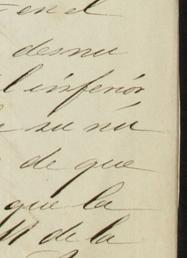 en el
desnu
l inferior
su nú
de que
que la
de la